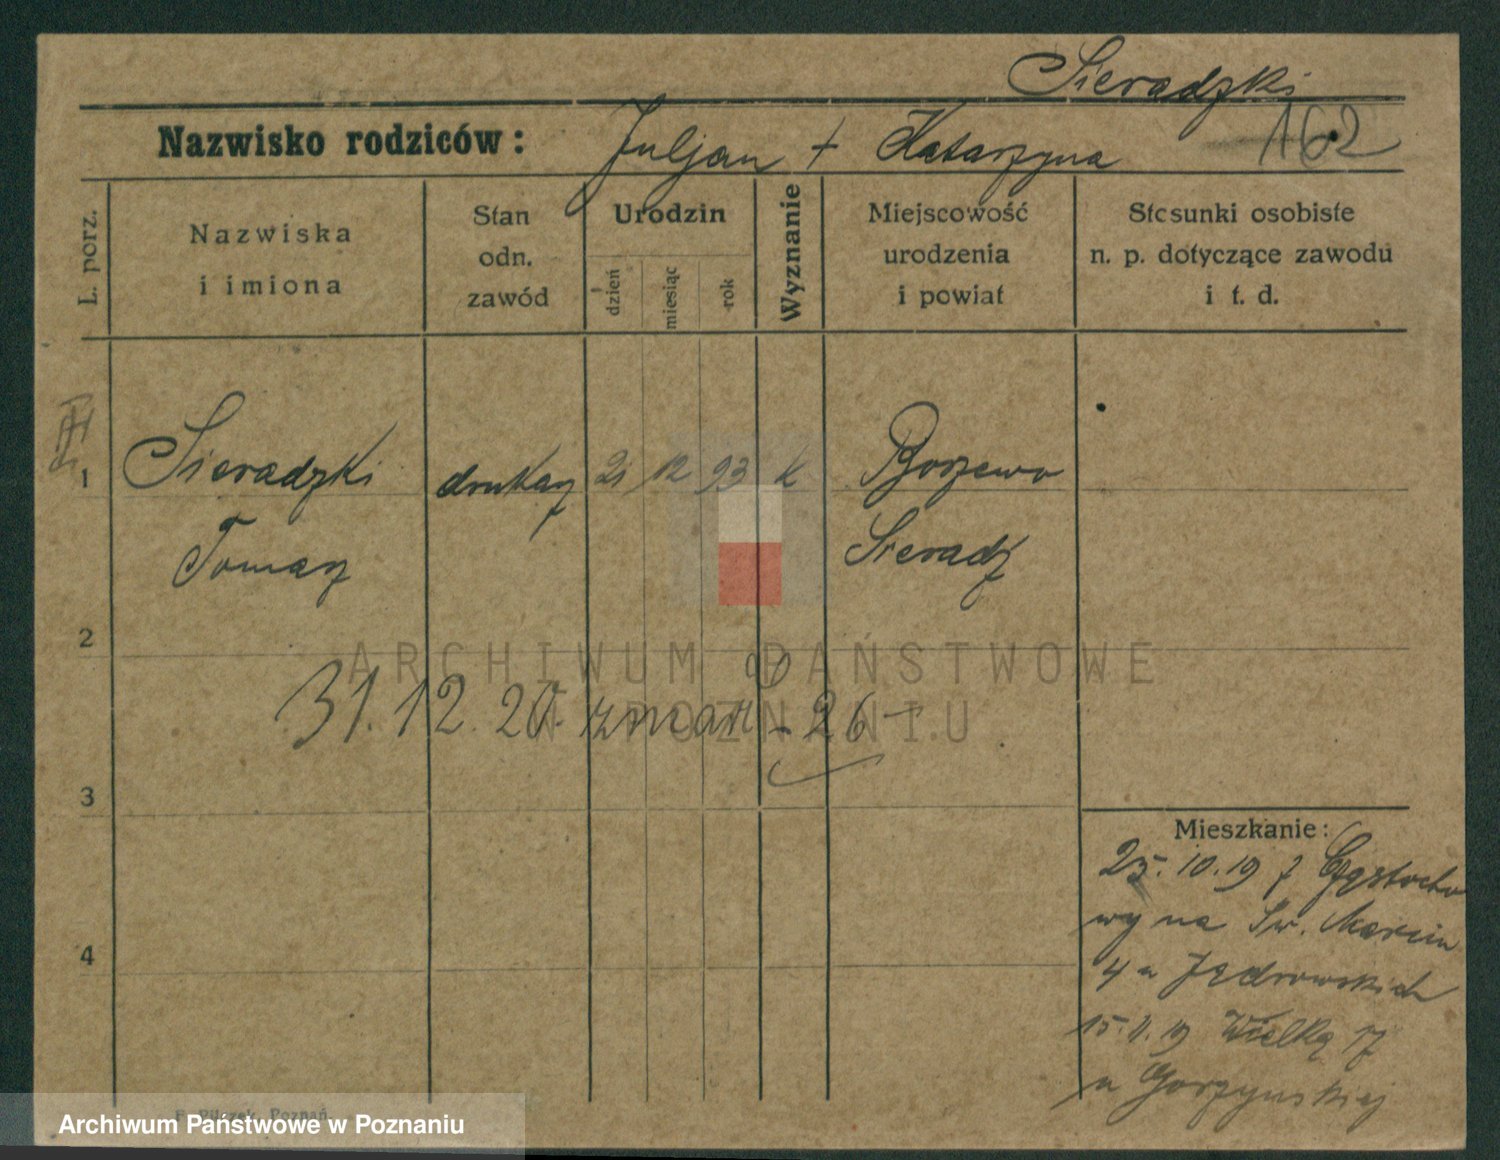 Sieradzki
Nazwisko rodziców: Juljan + Katarzyna 162
L. porz.
Nazwiska
i imiona
Stan
odn.
zawód
Urodzin
dzień
miesiąc
rok
Wyznanie
Miejscowość
urodzenia
i powiat
Stosunki osobiste
n. p. dotyczące zawodu
i t. d.
1 Sieradzki drukarz 21 12 93 k Borzewo
Tomasz Sieradz
2
31.12.20. zmarł - 26 -
3
4
Mieszkanie:
25.10.19 z Częstocho
wy na Św. Marcin
4 u Jędrowskich
15.11.19 Wielką 17
u Gorzyńskiej
F. Pilczek, Poznań.
ARCHIWUM PAŃSTWOWE
W POZNANIU
Archiwum Państwowe w Poznaniu